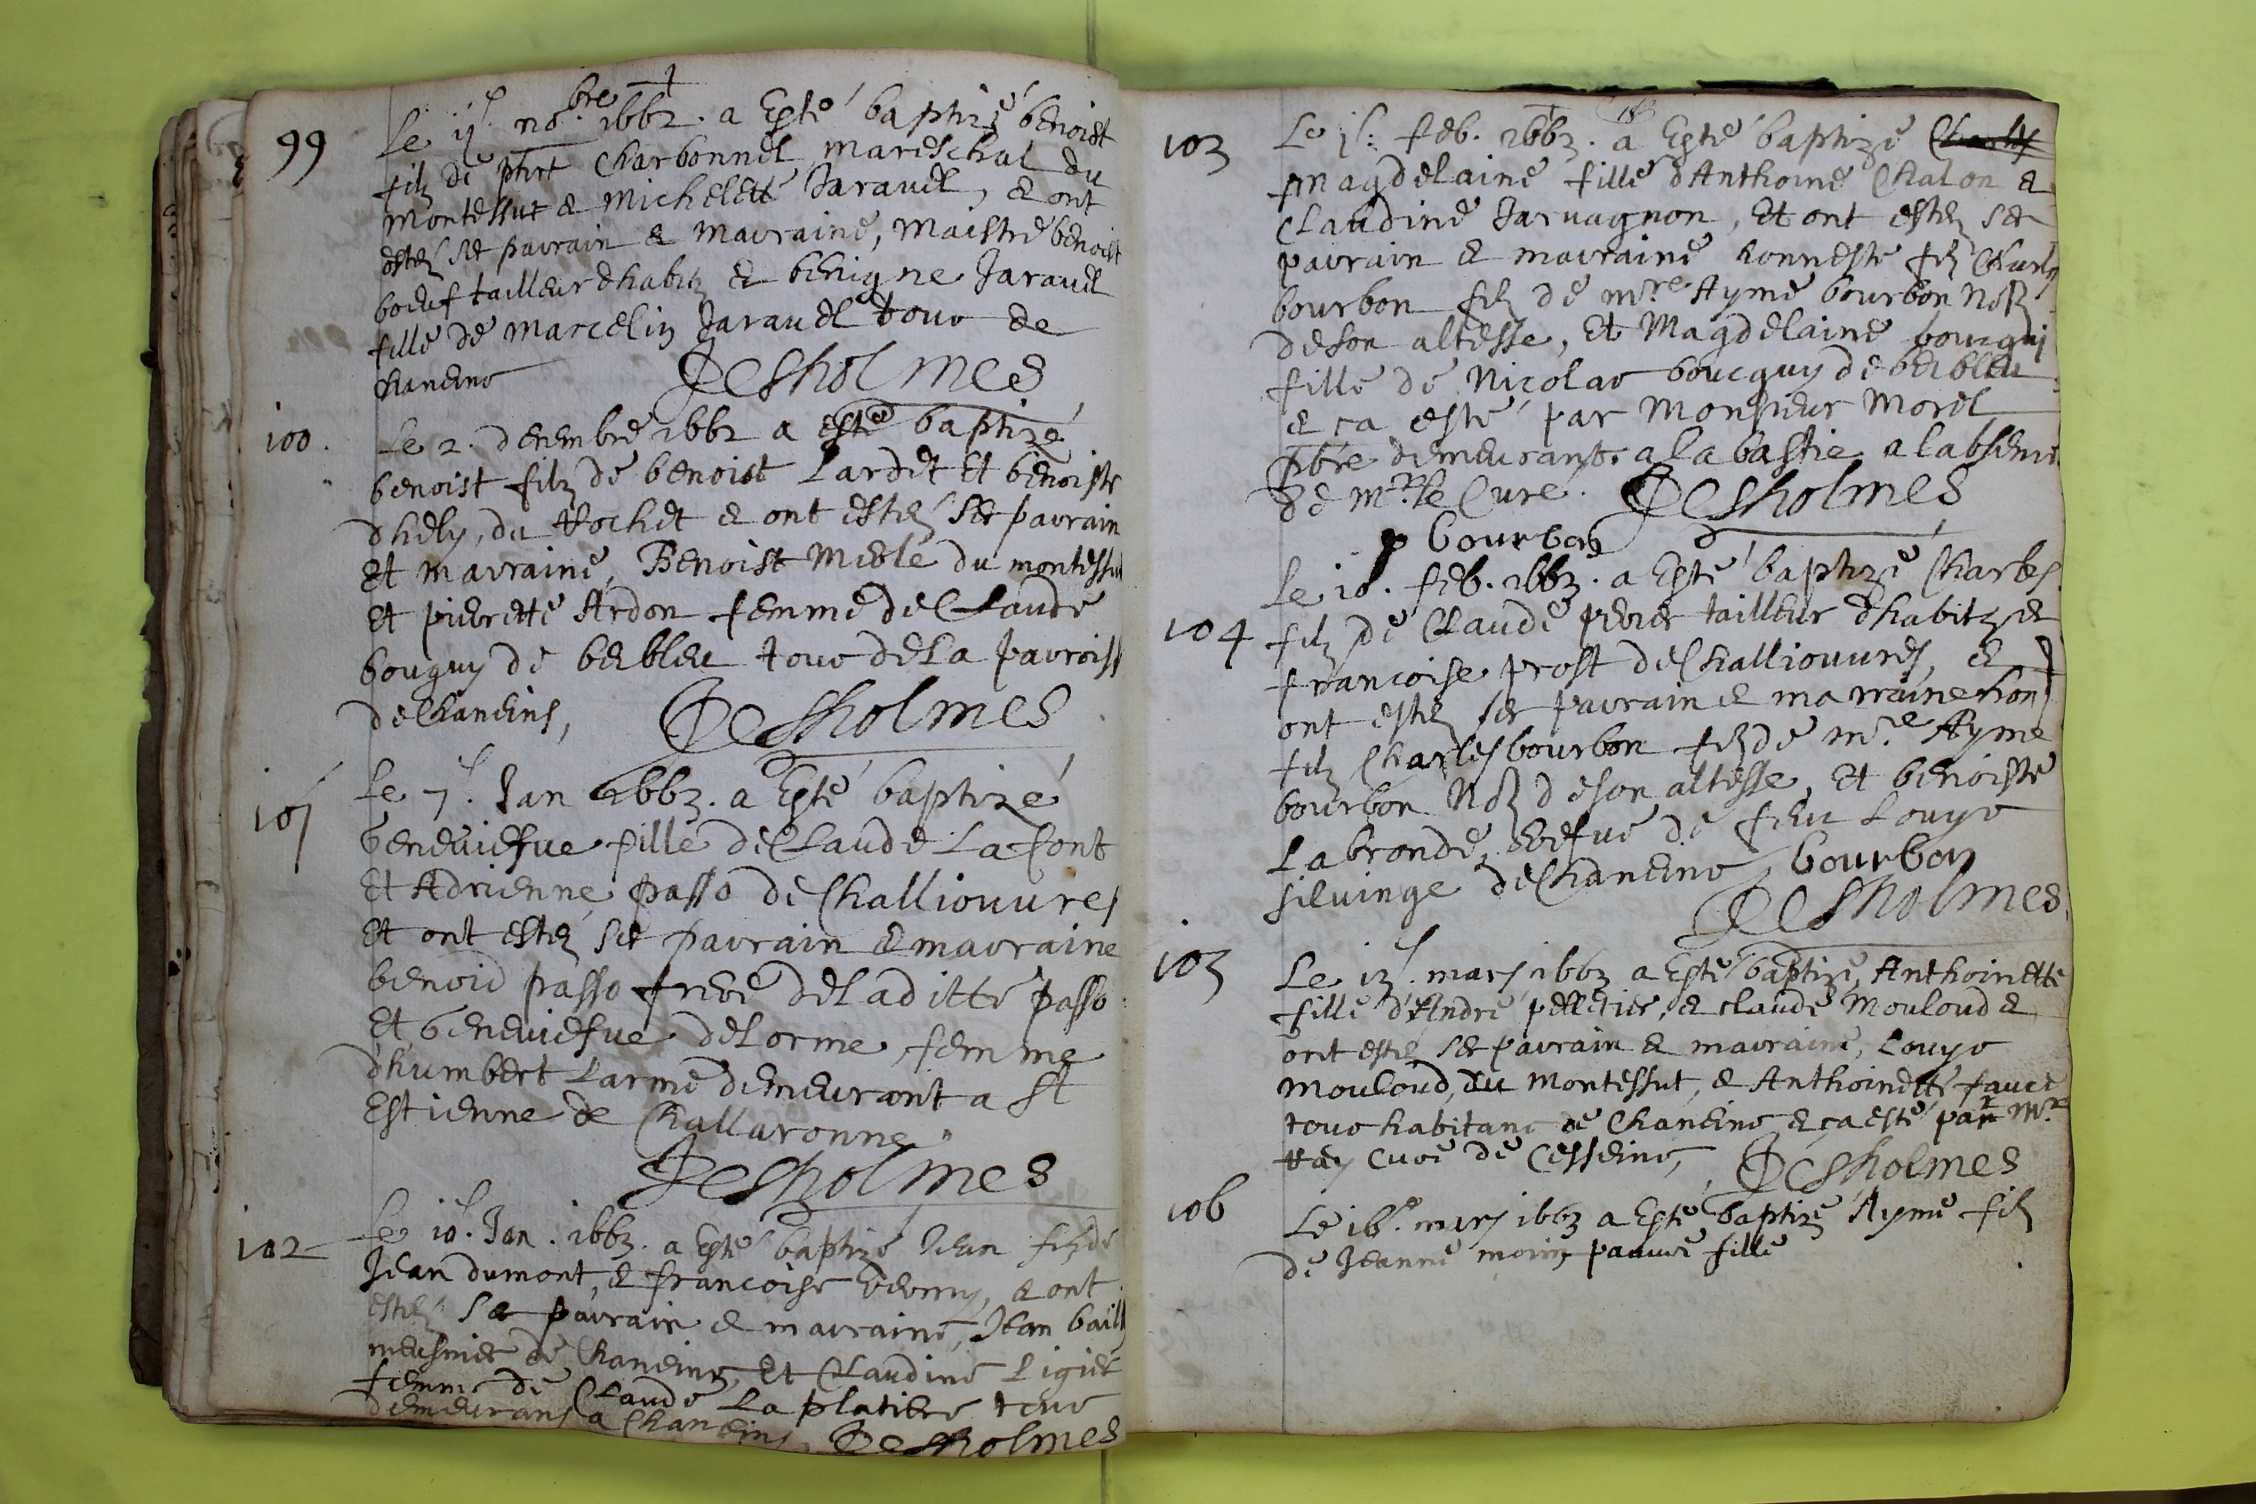 99
Le ij. no.bre 1662. a Esté baptizé benoist
filz de pierre Charbonnel mareschal du
montessut & Michelette Jaraudl, & ont
estez ses parrain & marraine, maistre benoist
boeuf tailleur dhabitz & benigne Jaraudl
fille de Marcelin Jaraudl tous de
chaneins
Desholmes
100.
Le 2. decembre 1662 a esté baptizé
benoist filz de benoist Lardet Et benoiste
dhely, du Rochet & ont estez ses parrain
Et marraine, Benoist Mesle du montessu
Et pierrette Ardon femme de Claude
bouguy de berbleu tous de la parroiss
de Chaneins,
Desholmes
101
Le 7. Jan 1663. a Esté baptizé
Geneuiefue fille de Claude Lafont
Et Adrienne passo de Challiouures
Et ont estez ses parrain & marraine
benoid passo frere de laditte passo
Et Geneuiefue delorme femme
dhumbert Larme demeurant a St
Estienne de Challaronne
Desholmes
102
Le 10. Jan. 1663. a Esté baptizé Jean filz de
Jean dumont, & francoise, & ont
estez ses parrain & marraine, Jean baill
meusnier de Chaneins Et Claudine Ligier
femme de Claude La platiere tous
demeurans a Chaneins Desholmes
103
Le j. feb. 1663. a Esté baptizé
Magdelaine fille dAnthoine Chalon &
Claudine Jaruagnon, Et ont estez ses
parrain & marraine honneste filz Charles
bourbon filz de m.re Aymé bourbon No.re
de son altesse, Et Magdelaine bouguj
fille de Nicolas boucguy de berbleu
& ca esté par Monsieur Morel
pbre demeurant a la bastie a labsence
de Mr. le Curé. Desholmes
p Bourbon
104
Le 10. feb. 1663. a Esté baptizé Charles
filz de Claude perier tailleur dhabitz &
francoise prost de Challiouures, &
ont estez ses parrain & marraine hon
filz Charles bourbon filz de m.re Aymé
bourbon No.re de son altesse, Et benoiste
Labronde, vefue de feu Louys
siluinge de Chaneins Bourbon
Desholmes
105
Le 12. mars 1663 a Esté baptizé, Anthoinette
fille d'André pelletier, & claude Mouloud &
ont estez ses parrain & marraine, Louys
Mouloud, du montessut, & Anthoinette faure
tous habitans de Chaneins & ca esté par Mr.
Ray Curé de Cesseins, Desholmes
106
Le 16. mars 1663 a Esté baptizé Aymé filz
de Jeanne morin pauure fille